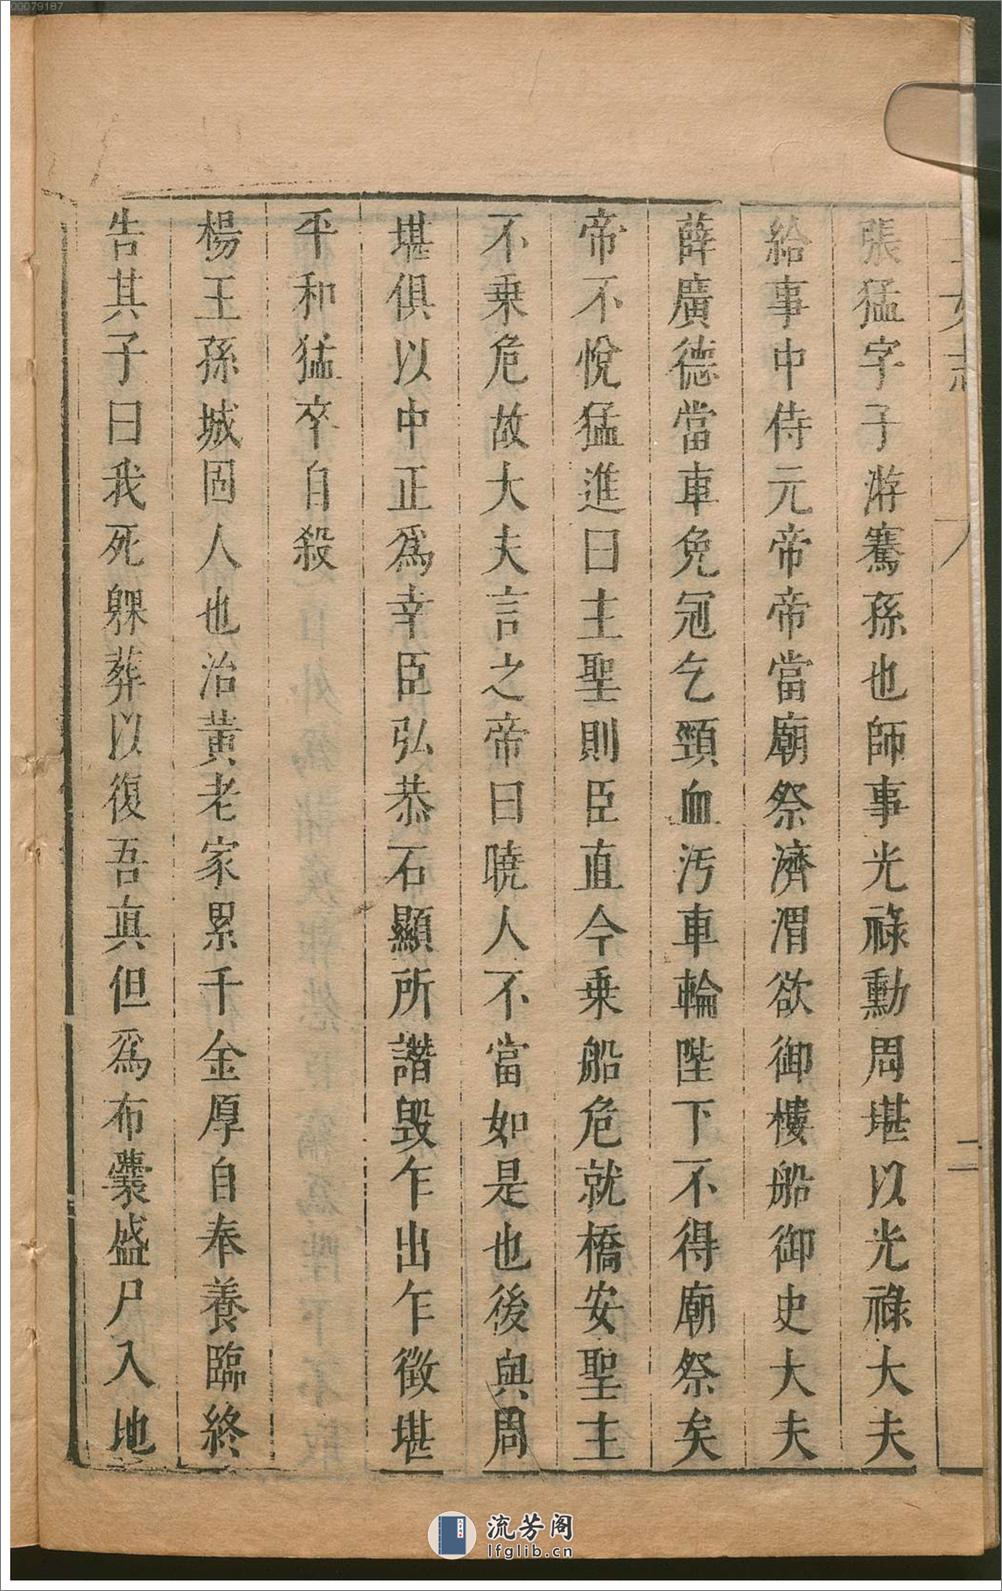 張猛字子游騫孫也師事光祿勳周堪以光祿大夫
給事中侍元帝帝當廟祭濟渭欲御樓船御史大夫
薛廣德當車免冠乞頸血汚車輪陛下不得廟祭矣
帝不悅猛進曰主聖則臣直今乗船危就橋安聖主
不乗危故大夫言之帝曰曉人不當如是也後與周
堪俱以中正爲幸臣弘恭石顯所譖毀乍出乍徵堪
平和猛卒自殺
楊王孫城固人也治黄老家累千金厚自奉養臨終
告其子曰我死躶葬以復吾真但爲布囊盛尸入地
二
00079187
流芳阁
lfglib.cn